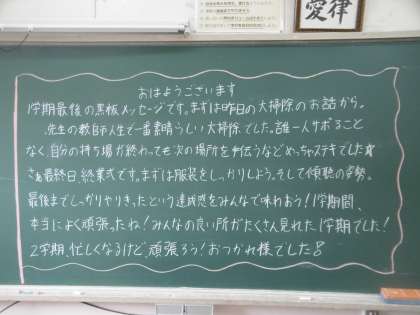 律
愛
おはようございます
1学期最後の黒板メッセージです。まずは昨日の大掃除のお話から。
先生の教師人生で一番素晴らしい大掃除でした。誰一人サボること
なく、自分の持ち場が終わっても次の場所を手伝うなどめっちゃステキでした☆
さぁ最終日、終業式です。まずは服装をしっかりしよう。そして傾聴の姿勢。
最後までしっかりやりきったという達成感をみんなで味わおう！1学期間、
本当によく頑張ったね！みんなの良い所がたくさん見れた1学期でした！
2学期、忙しくなるけど、頑張ろう！おつかれ様でした